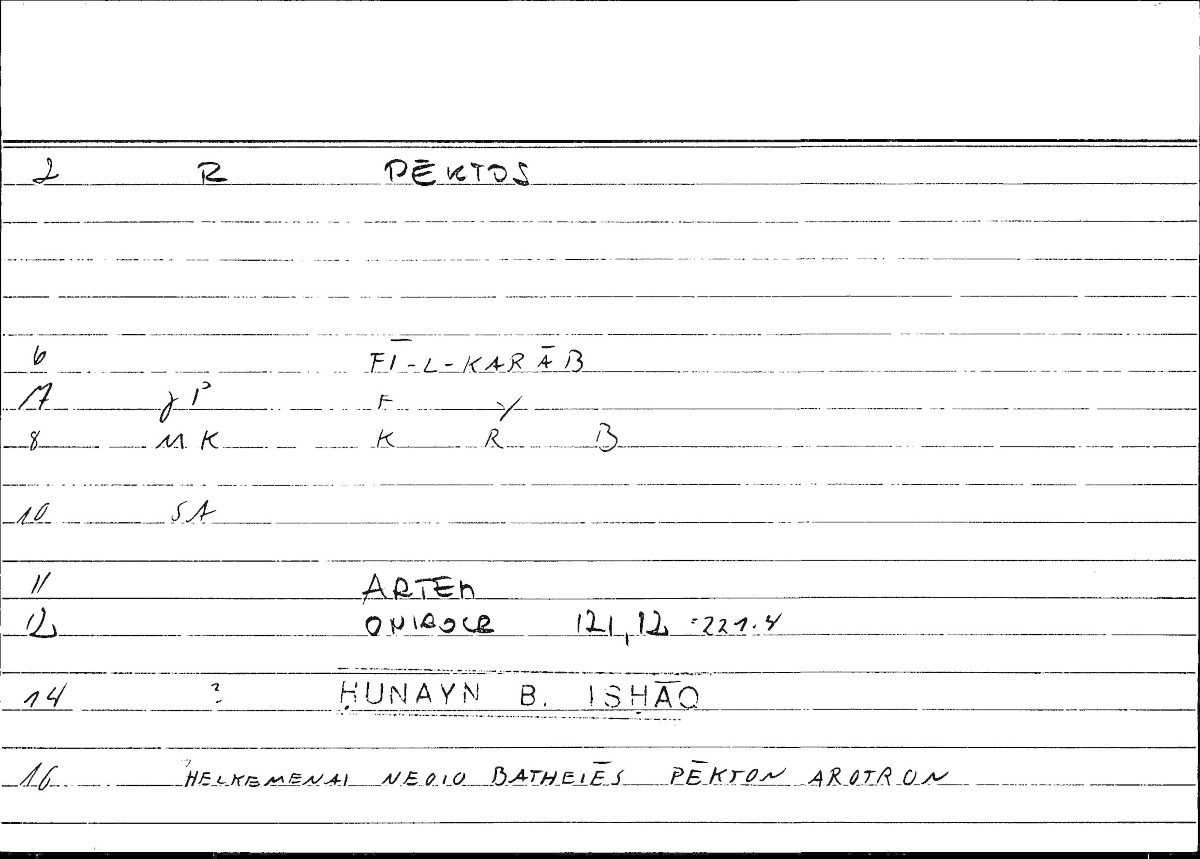 2 R PĒKTOS
6 FĪ-L-KARĀB
17 gP F Y
8 MK K R B
10 SA
11 ARTEM
12 ONIROCR 121,12 = 221.4
14 ? ḤUNAYN B. ISḤĀQ
16 HELKEMENAI NEOIO BATHEIĒS PĒKTON AROTRON